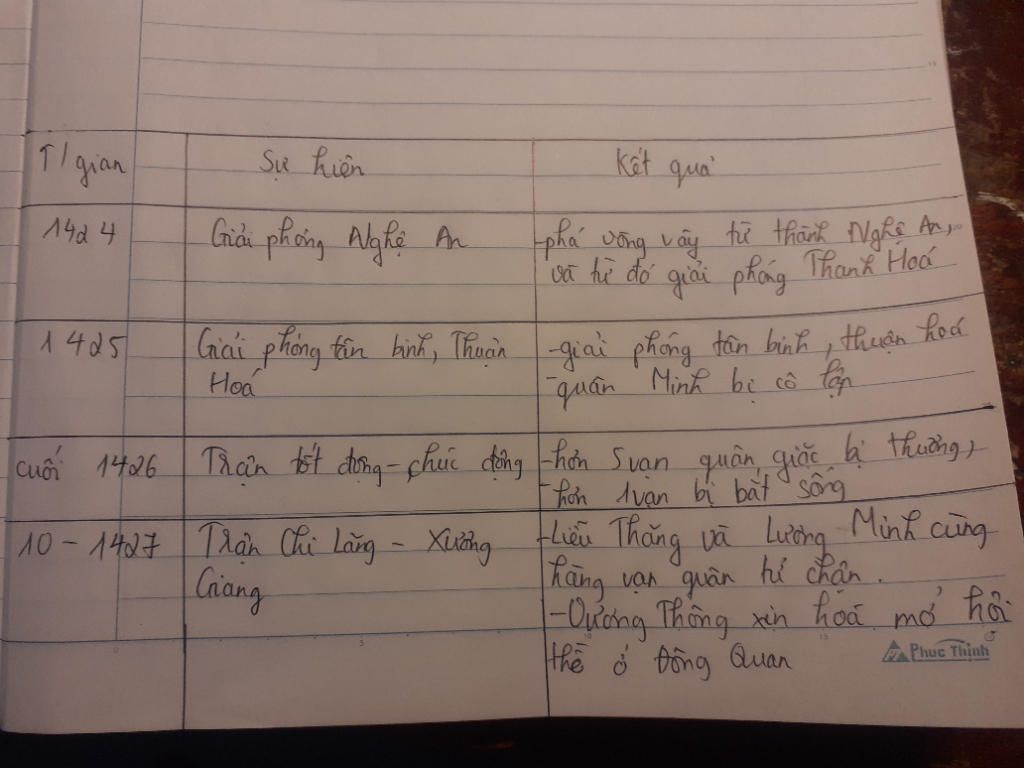 T/gian Sự hiện Kết quả
1424 Giải phóng Nghệ An -phá vòng vây từ thành Nghệ An,
và từ đó giải phóng Thanh Hoá
1425 Giải phóng tân bình, Thuận -giải phóng tân bình, thuận hoá
Hoá -quân Minh bị cô lập
cuối 1426 Trận tốt động - chúc động -hơn 5 vạn quân giặc bị thương,
-hơn 1 vạn bị bắt sống
10 - 1427 Trận Chi Lăng - Xương -Liễu Thăng và Lương Minh cùng
Giang hàng vạn quân tử chận.
-Vương Thông xin hoà mở hội
thề ở Đông Quan
Phuc Thịnh